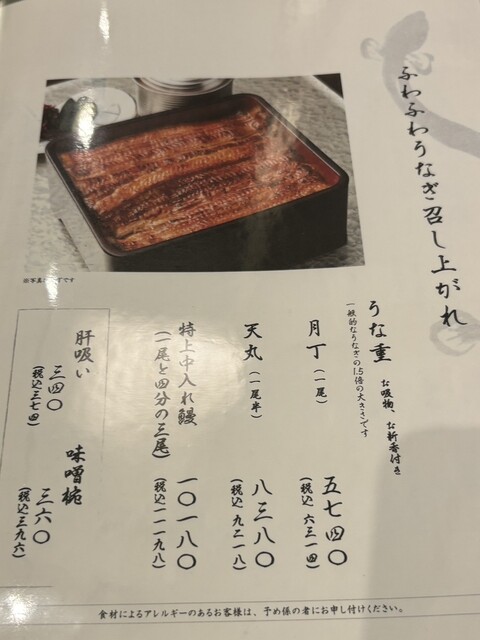 ふわふわうなぎ召し上がれ
うな重 お吸物、お新香付き
一般的なうなぎの1.5倍の大きさです
月丁（一尾） 五七四〇
（税込 六三一四）
天丸（一尾半） 八三八〇
（税込 九二一八）
特上中入れ鰻 一〇一八〇
（一尾と四分の三尾） （税込 一一一九八）
肝吸い 三四〇
（税込三七四）
味噌椀 三六〇
（税込三九六）
※写真 です
食材によるアレルギーのあるお客様は、予め係の者にお申し付けください。